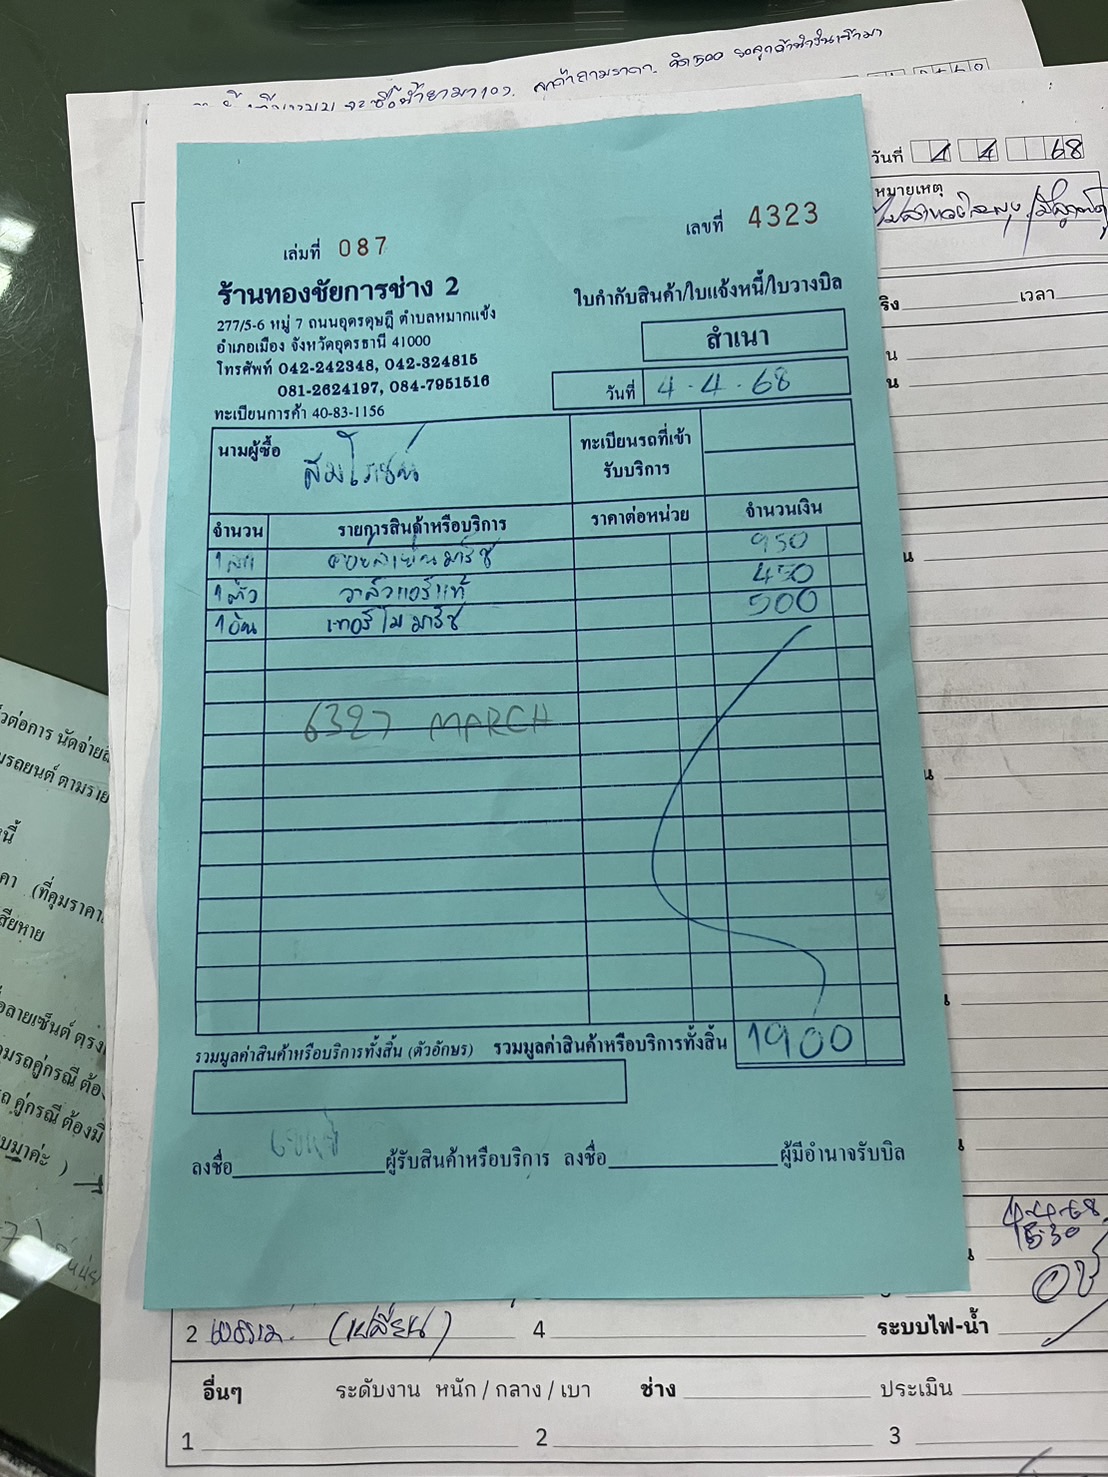 วันที่ 4 4 68
หมายเหตุ
เล่มที่ 087
เลขที่ 4323
ร้านทองชัยการช่าง 2
277/5-6 หมู่ 7 ถนนอุดรดุษฎี ตำบลหมากแข้ง
อำเภอเมือง จังหวัดอุดรธานี 41000
โทรศัพท์ 042-242348, 042-324815
081-2624197, 084-7951516
ทะเบียนการค้า 40-83-1156
ใบกำกับสินค้า/ใบแจ้งหนี้/ใบวางบิล
สำเนา
วันที่ 4-4-68
นามผู้ซื้อ
ทะเบียนรถที่เข้า
รับบริการ
จำนวน รายการสินค้าหรือบริการ ราคาต่อหน่วย จำนวนเงิน
คอยล์เย็นมาร์ช 950
1 ตัว วาล์วแอร์แท้ 450
1 อัน เทอร์โมมาร์ช 500
6327 MARCH
รวมมูลค่าสินค้าหรือบริการทั้งสิ้น (ตัวอักษร) รวมมูลค่าสินค้าหรือบริการทั้งสิ้น 1900
ลงชื่อ ผู้รับสินค้าหรือบริการ ลงชื่อ ผู้มีอำนาจรับบิล
เวลา
4-4-68
15.30
2 (เปลี่ยน) 4 ระบบไฟ-น้ำ
อื่นๆ ระดับงาน หนัก / กลาง / เบา ช่าง ประเมิน
1 2 3
วต่อการ นัดจ่าย
มรถยนต์ ตามราย
นี้
คา (ที่คุมราคา
สียหาย
อลายเซ็นต์ ตรง
มรถคู่กรณี ต้อง
ถ คู่กรณี ต้องมี
บมาค่ะ )